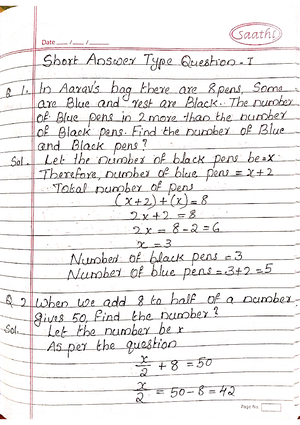 Saathi
Date __/__/__
Short Answer Type Question - I
Q 1. In Aarav's bag there are 8 pens, Some
are Blue and rest are Black. The number
of Blue pens in 2 more than the number
of Black pens. Find the number of Blue
and Black pens?
Sol. Let the number of black pens be x
Therefore, number of blue pens = x+2
Total number of pens
(x+2)+(x)=8
2x+2=8
2x=8-2=6
x=3
Number of black pens=3
Number of blue pens=3+2=5
Q 2. When we add 8 to half of a number
gives 50, find the number?
Sol. Let the number be x
As per the question
x/2 + 8 = 50
x/2 = 50-8=42
Page No.